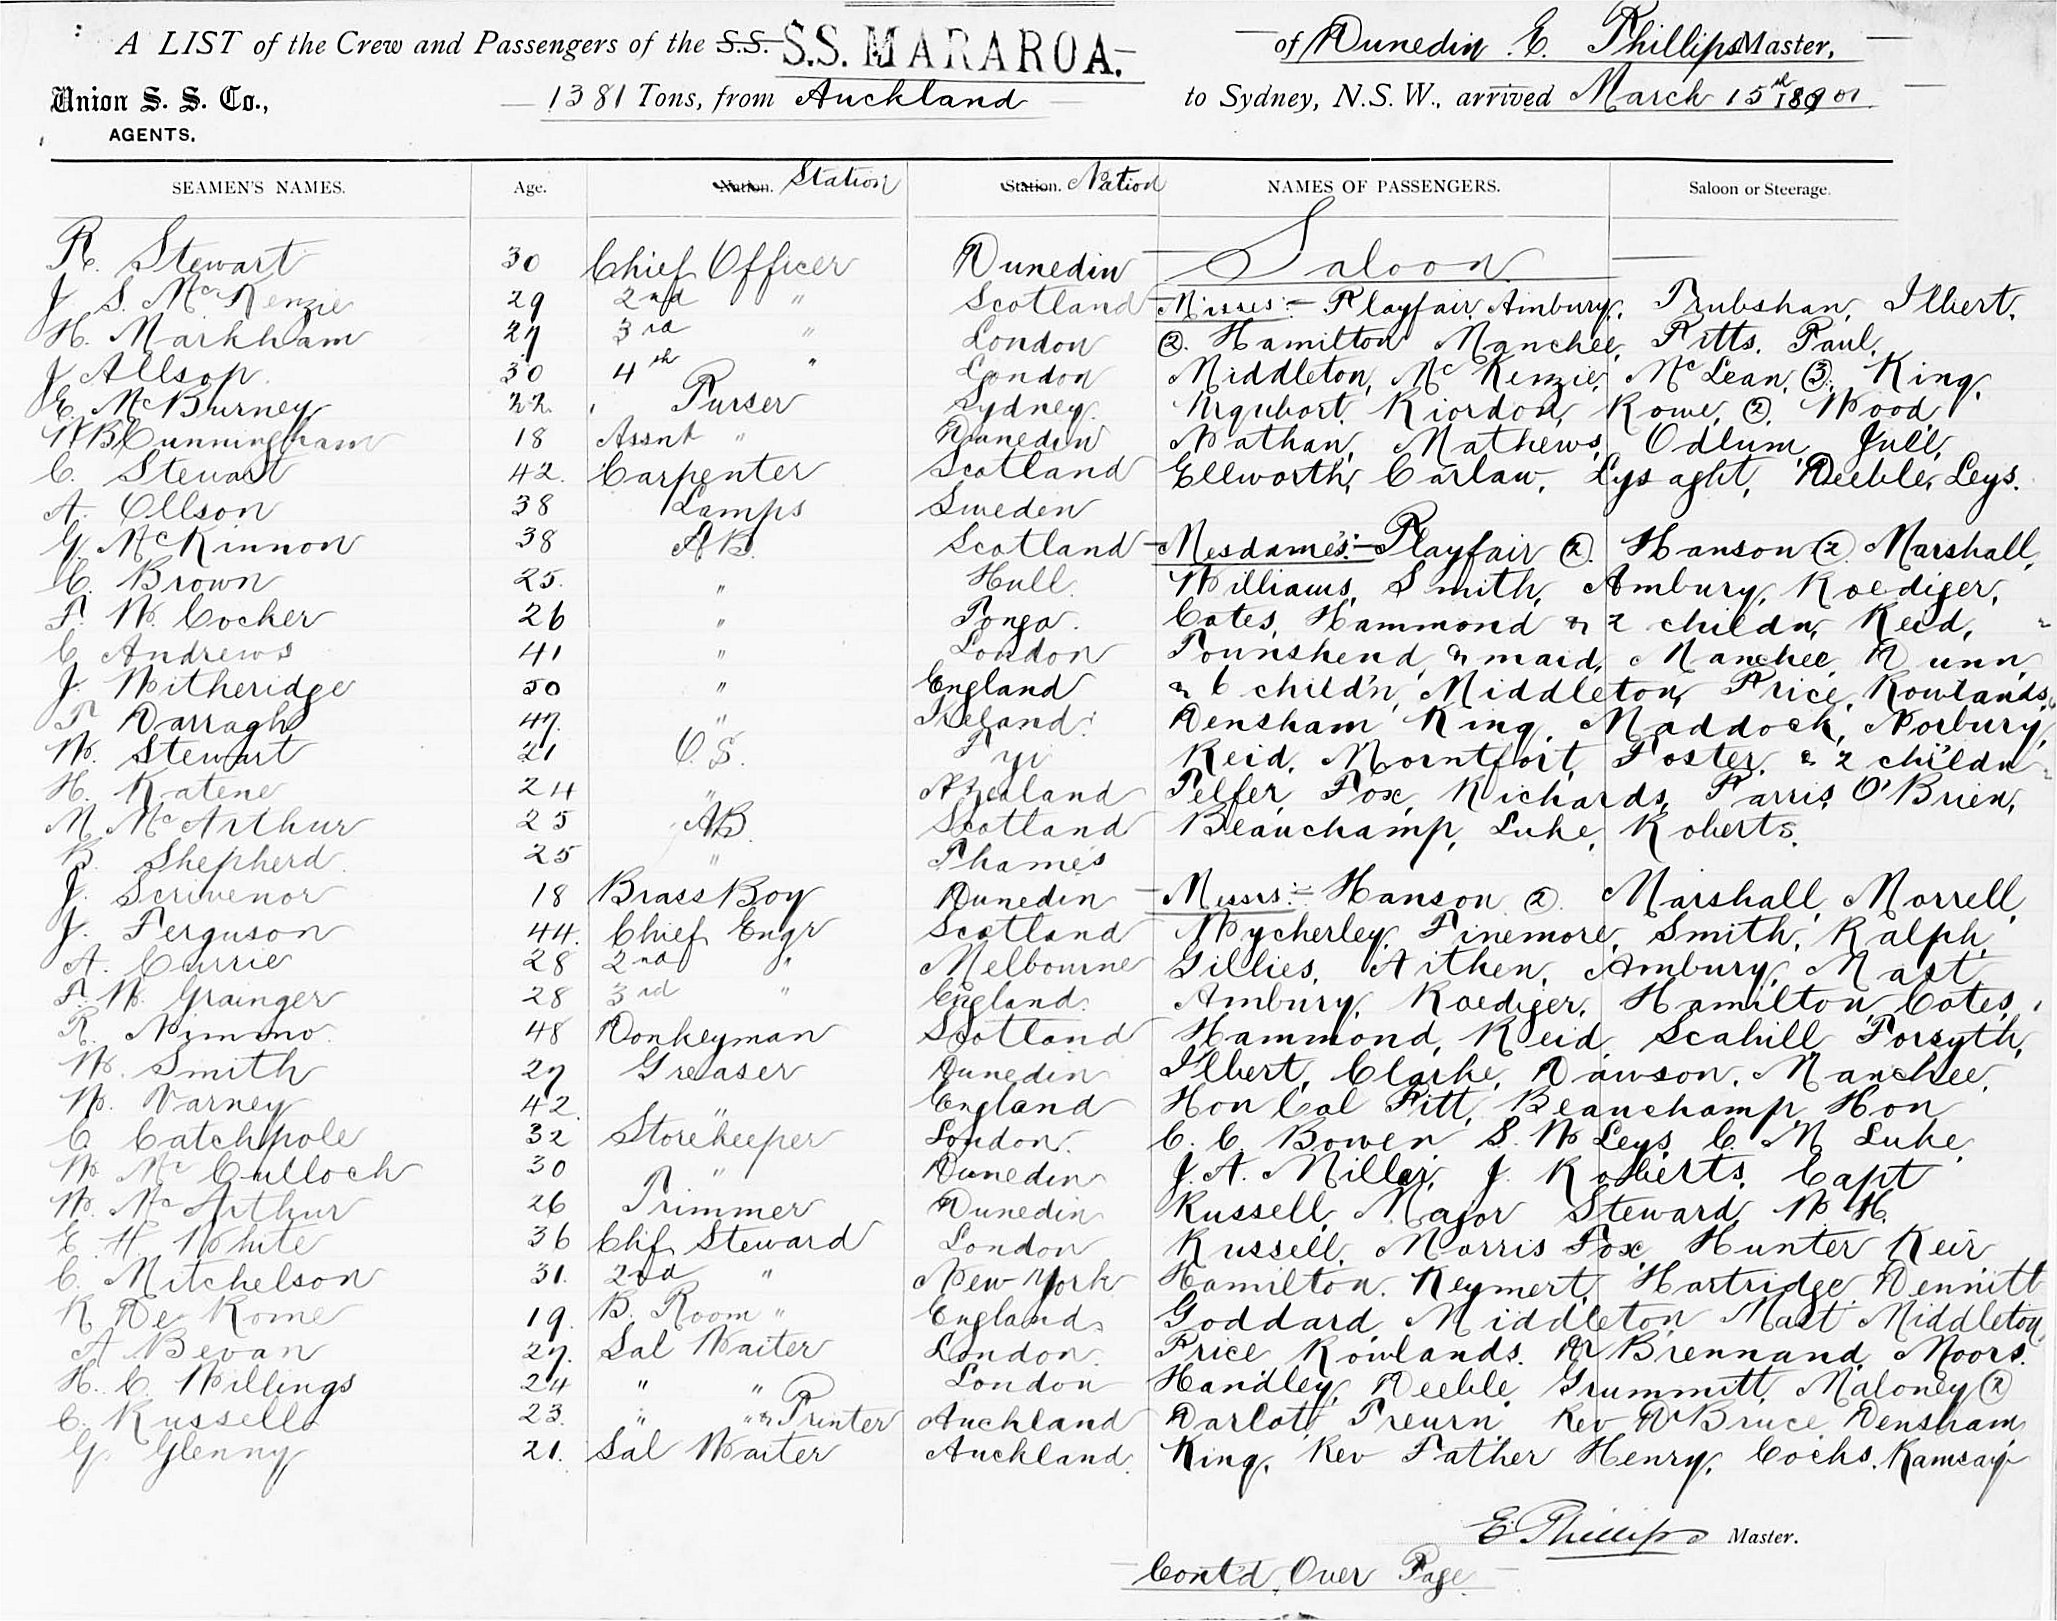 A LIST of the Crew and Passengers of the S.S. S.S. MARAROA. of Dunedin E. Phillips Master,
Union S. S. Co., 1381 Tons, from Auckland to Sydney, N.S.W., arrived March 15th 1901
AGENTS.
SEAMEN'S NAMES. Age. Nation. Station Station. Nation NAMES OF PASSENGERS. Saloon or Steerage.
R. Stewart 30 Chief Officer Dunedin Saloon
J. S. McKenzie 29 2nd " Scotland Misses:- Playfair, Ambury, Trubshan, Ilbert,
H. Markham 27 3rd " London (2). Hamilton Manchee, Pitts, Paul,
J Allsop. 30 4th " London Middleton, McKenzie, McLean, (3). King,
E. McBurney 22. Purser Sydney. Urquhart, Riordon, Rowe, (2). Wood
W B Cunningham 18 Assnt " Dunedin Nathan, Mathews, Odlum, Jull,
C. Stewart 42. Carpenter Scotland Ellworth, Carlaw, Lysaght, Deeble, Leys.
A. Ollson 38 Lamps Sweden
G. McKinnon 38 AB. Scotland Mesdames:- Playfair (2). Hanson (2) Marshall,
C. Brown 25. " Hull Williams, Smith, Ambury, Roediger,
F. W. Cocker 26 " Tonga. Cates, Hammond & 2 childn, Reid,
C Andrews 41 " London Townshend, & maid, Manchee, Dunn
J. Witheridge 50 " England & 6 child'n, Middleton, Price, Rowlands,
T Darragh 47. " Ireland. Densham King, Maddock, Norbury,
W. Stewart 21 O.S. Fyi Reid, Morntfort, Foster, & 2 childn
H. Katene 24 " NZealand Telfer, Fox, Richards, Farris, O'Brien,
M. McArthur 25 AB. Scotland Beauchamp, Luke, Roberts.
B. Shepherd. 25 " Thames
J. Scrivenor 18 Brass Boy Dunedin Messrs:- Hanson (2). Marshall, Morrell,
J. Ferguson 44. Chief Engr Scotland Wycherley, Finemore, Smith, Ralph,
A. Currie 28 2nd " Melbourne Gillies, Aitken, Ambury, Mast
F. W. Grainger 28 3rd " England. Ambury, Roediger, Hamilton, Cates,
R. Nimmo. 48 Donkeyman Scotland Hammond, Reid, Scahill Forsyth,
W. Smith 27 Greaser Dunedin Ilbert, Clarke, Dawson, Manchee,
W. Varney 42. " England Hon Col Pitt, Beauchamp, Hon
C. Catchpole 32 Storekeeper London. C. C. Bowen S. W Leys, C. M Luke,
W. McCulloch 30 " Dunedin J. A. Millar, J. Roberts, Capt
W. McArthur 26 Trimmer Dunedin Russell, Major Steward W H.
E. H. White 36 Chf Steward London Russell, Morris Fox, Hunter, Keir
C. Mitchelson 31. 2nd " New York Hamilton, Keymert, Hartridge, Dennitt
R De Rome 19. B. Room " England. Goddard, Middleton Mast Middleton,
A Bevan 27. Sal Waiter London. Price Rowlands. Dr Brennand, Moors.
H. C. Willings 24 " " London Handley, Deeble, Grummitt, Maloney (2)
C. Russell 23. " " & Printer Auckland Darlot, Treurn, Rev Dr Bruce Densham
G. Glenny 21. Sal Waiter Auckland. King, Rev Father Henry, Cocks, Ramsay
E. Phillips Master.
Cont'd Over Page